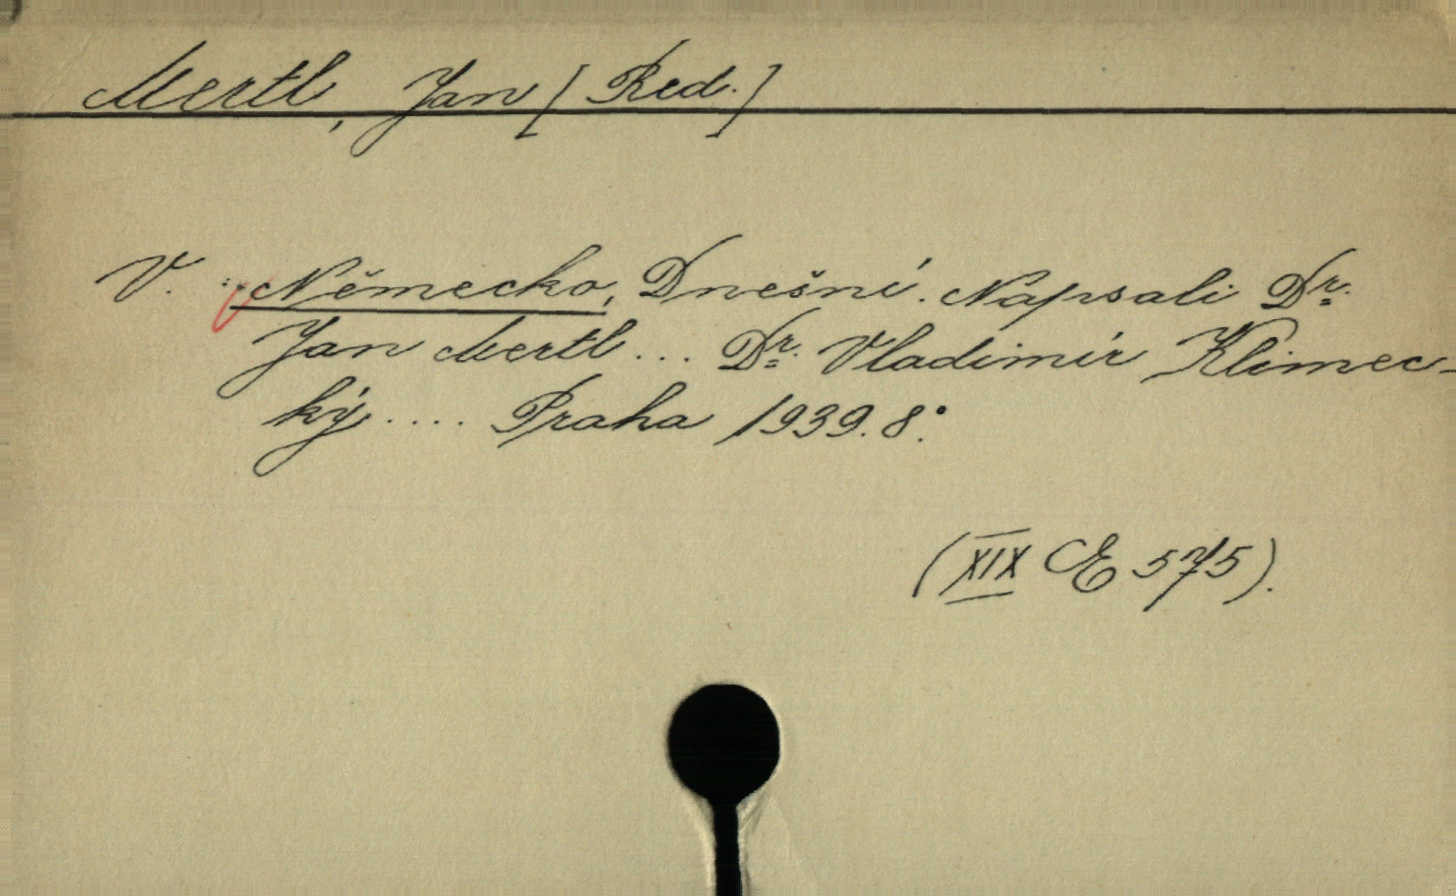 Mertl, Jan [Red.]
V. : Německo, Dnešní. Napsali Dr.
Jan Mertl... Dr. Vladimír Klimec-
ký.... Praha 1939. 8°.
(XIX E 575).